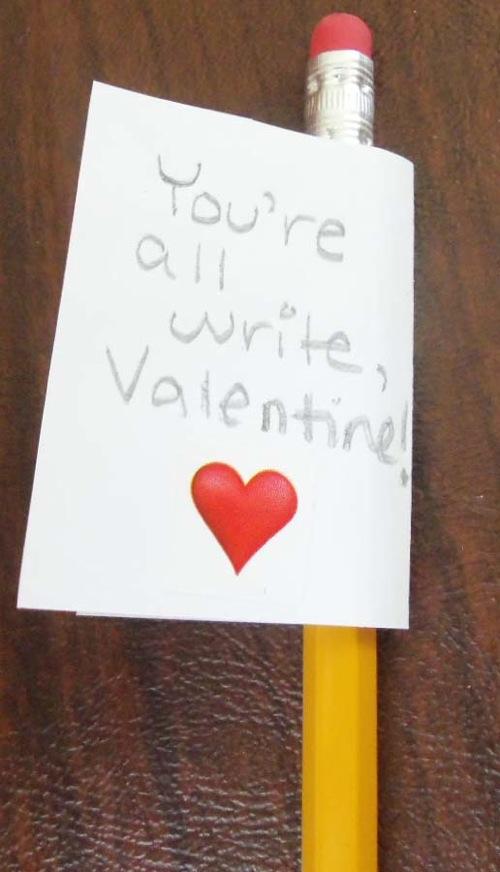 You're
all
write,
Valentine!